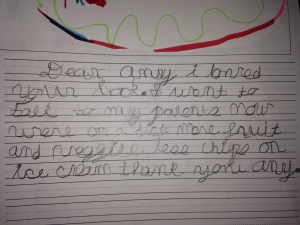 Dear Amy i loved
your book. I went to
tell to my parents now
were on a diet more fruit
and veggies less chips on
ice cream thank you Amy.